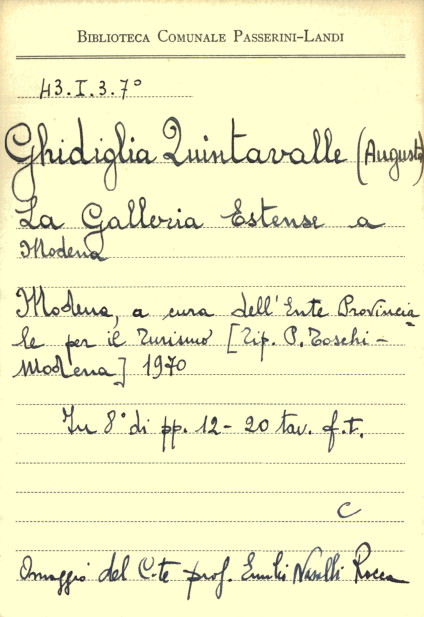 BIBLIOTECA COMUNALE PASSERINI-LANDI
43.I.3.7°
Ghidiglia Quintavalle (Augusta)
La Galleria Estense a
Modena
Modena, a cura dell'Ente Provincia
le per il Turismo [Tip. P. Toschi -
Modena] 1970
In 8° di pp. 12 - 20 tav. f.t.
C
Omaggio del C.te prof. Emilio Nasalli Rocca